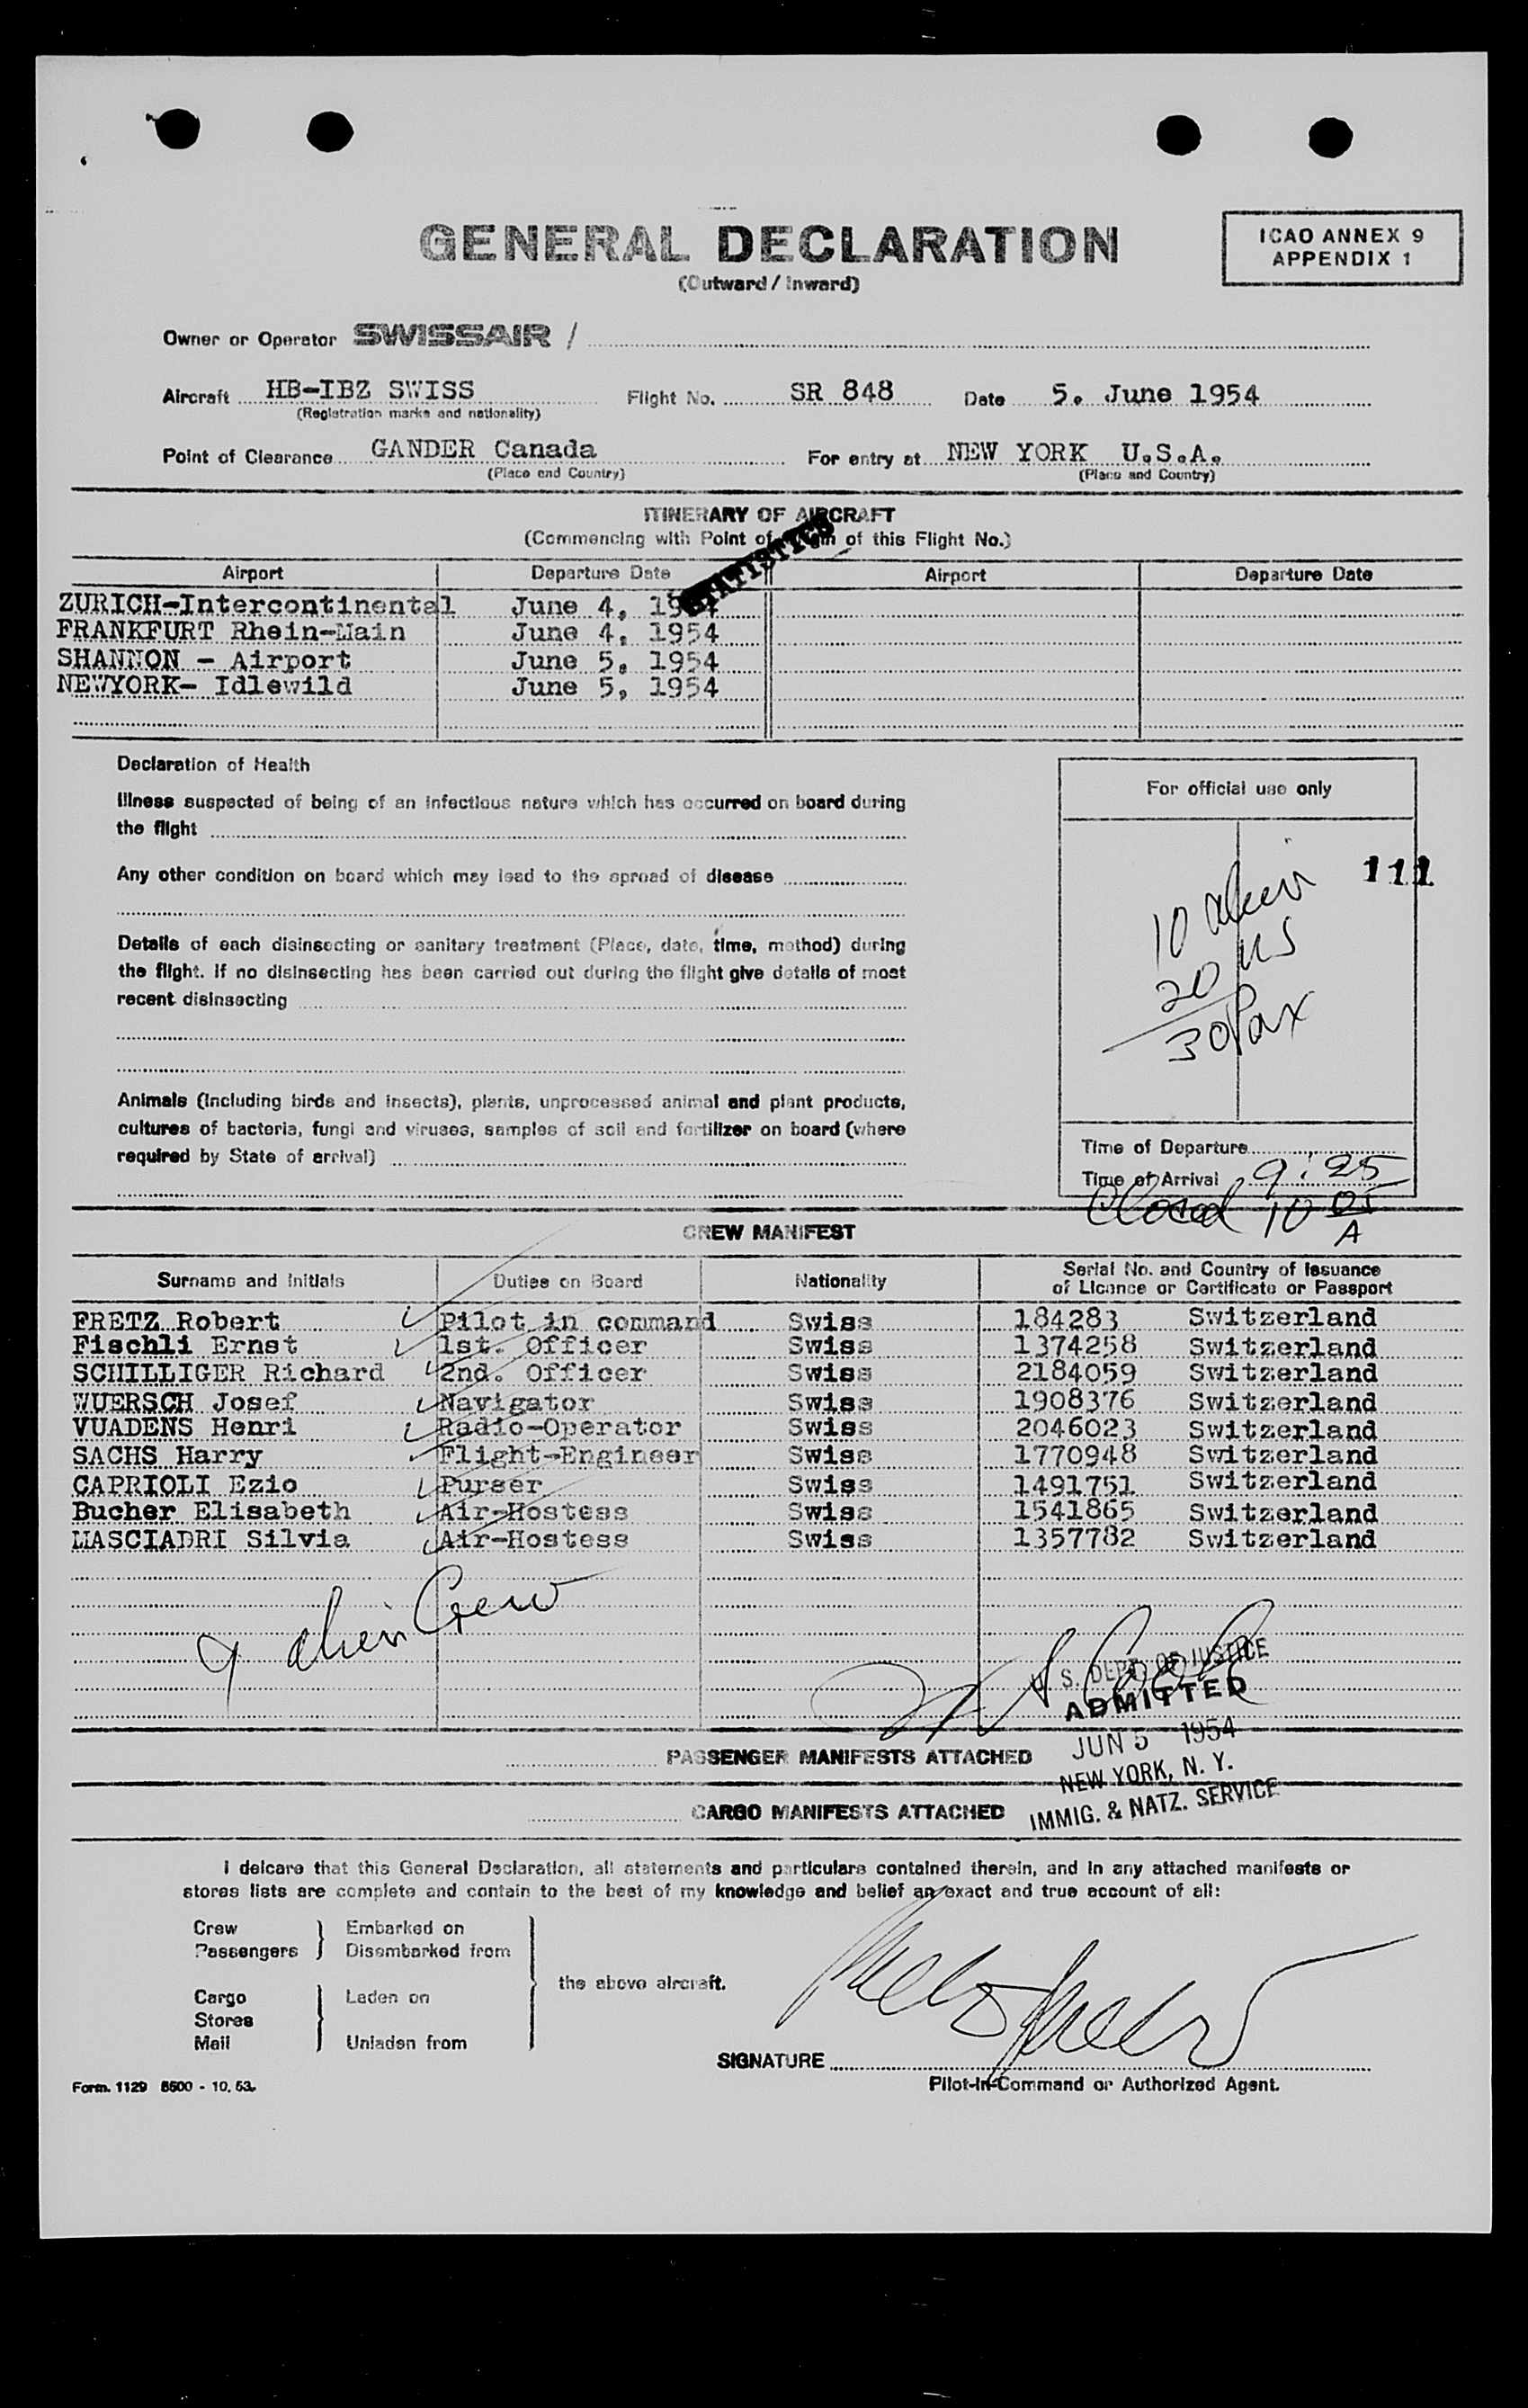 GENERAL DECLARATION
(Outward / Inward)
ICAO ANNEX 9
APPENDIX 1
Owner or Operator SWISSAIR /
Aircraft HB-IBZ SWISS Flight No. SR 848 Date 5. June 1954
(Registration marks and nationality)
Point of Clearance GANDER Canada For entry at NEW YORK U.S.A.
(Place and Country) (Place and Country)
ITINERARY OF AIRCRAFT
(Commencing with Point of Origin of this Flight No.)
STATISTICS
Airport Departure Date Airport Departure Date
ZURICH-Intercontinental June 4, 1954
FRANKFURT Rhein-Main June 4. 1954
SHANNON - Airport June 5. 1954
NEWYORK- Idlewild June 5, 1954
Declaration of Health
Illness suspected of being of an infectious nature which has occurred on board during
the flight
Any other condition on board which may lead to the spread of disease
Details of each disinsecting or sanitary treatment (Place, date, time, method) during
the flight. If no disinsecting has been carried out during the flight give details of most
recent disinsecting
Animals (including birds and insects), plants, unprocessed animal and plant products,
cultures of bacteria, fungi and viruses, samples of soil and fertilizer on board (where
required by State of arrival)
For official use only
111
10 alien
20 US
30 Pax
Time of Departure
Time of Arrival 9:25
Closed 10 05 A
CREW MANIFEST
Surname and Initials Duties on Board Nationality Serial No. and Country of Issuance
of Licence or Certificate or Passport
FRETZ Robert Pilot in command Swiss 184283 Switzerland
Fischli Ernst 1st. Officer Swiss 1374258 Switzerland
SCHILLIGER Richard 2nd. Officer Swiss 2184059 Switzerland
WUERSCH Josef Navigator Swiss 1908376 Switzerland
VUADENS Henri Radio-Operator Swiss 2046023 Switzerland
SACHS Harry Flight-Engineer Swiss 1770948 Switzerland
CAPRIOLI Ezio Purser Swiss 1491751 Switzerland
Bucher Elisabeth Air-Hostess Swiss 1541865 Switzerland
MASCIADRI Silvia Air-Hostess Swiss 1357782 Switzerland
9 alien Crew
U. S. DEPT. OF JUSTICE
ADMITTED
JUN 5 1954
NEW YORK, N. Y.
IMMIG. & NATZ. SERVICE
PASSENGER MANIFESTS ATTACHED
CARGO MANIFESTS ATTACHED
I delcare that this General Declaration, all statements and particulars contained therein, and in any attached manifests or
stores lists are complete and contain to the best of my knowledge and belief an exact and true account of all:
Crew Embarked on
Passengers Disembarked from
the above aircraft.
Cargo Laden on
Stores
Mail Unladen from
SIGNATURE
Pilot-in-Command or Authorized Agent.
Form. 1129 5500 - 10. 53.